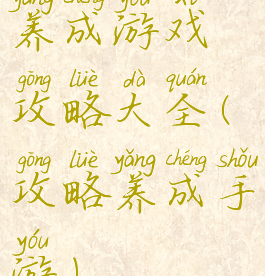 yǎng chéng yóu xì
养成游戏
gōng lüè dà quán
攻略大全(
gōng lüè yǎng chéng shǒu
攻略养成手
yóu
游)